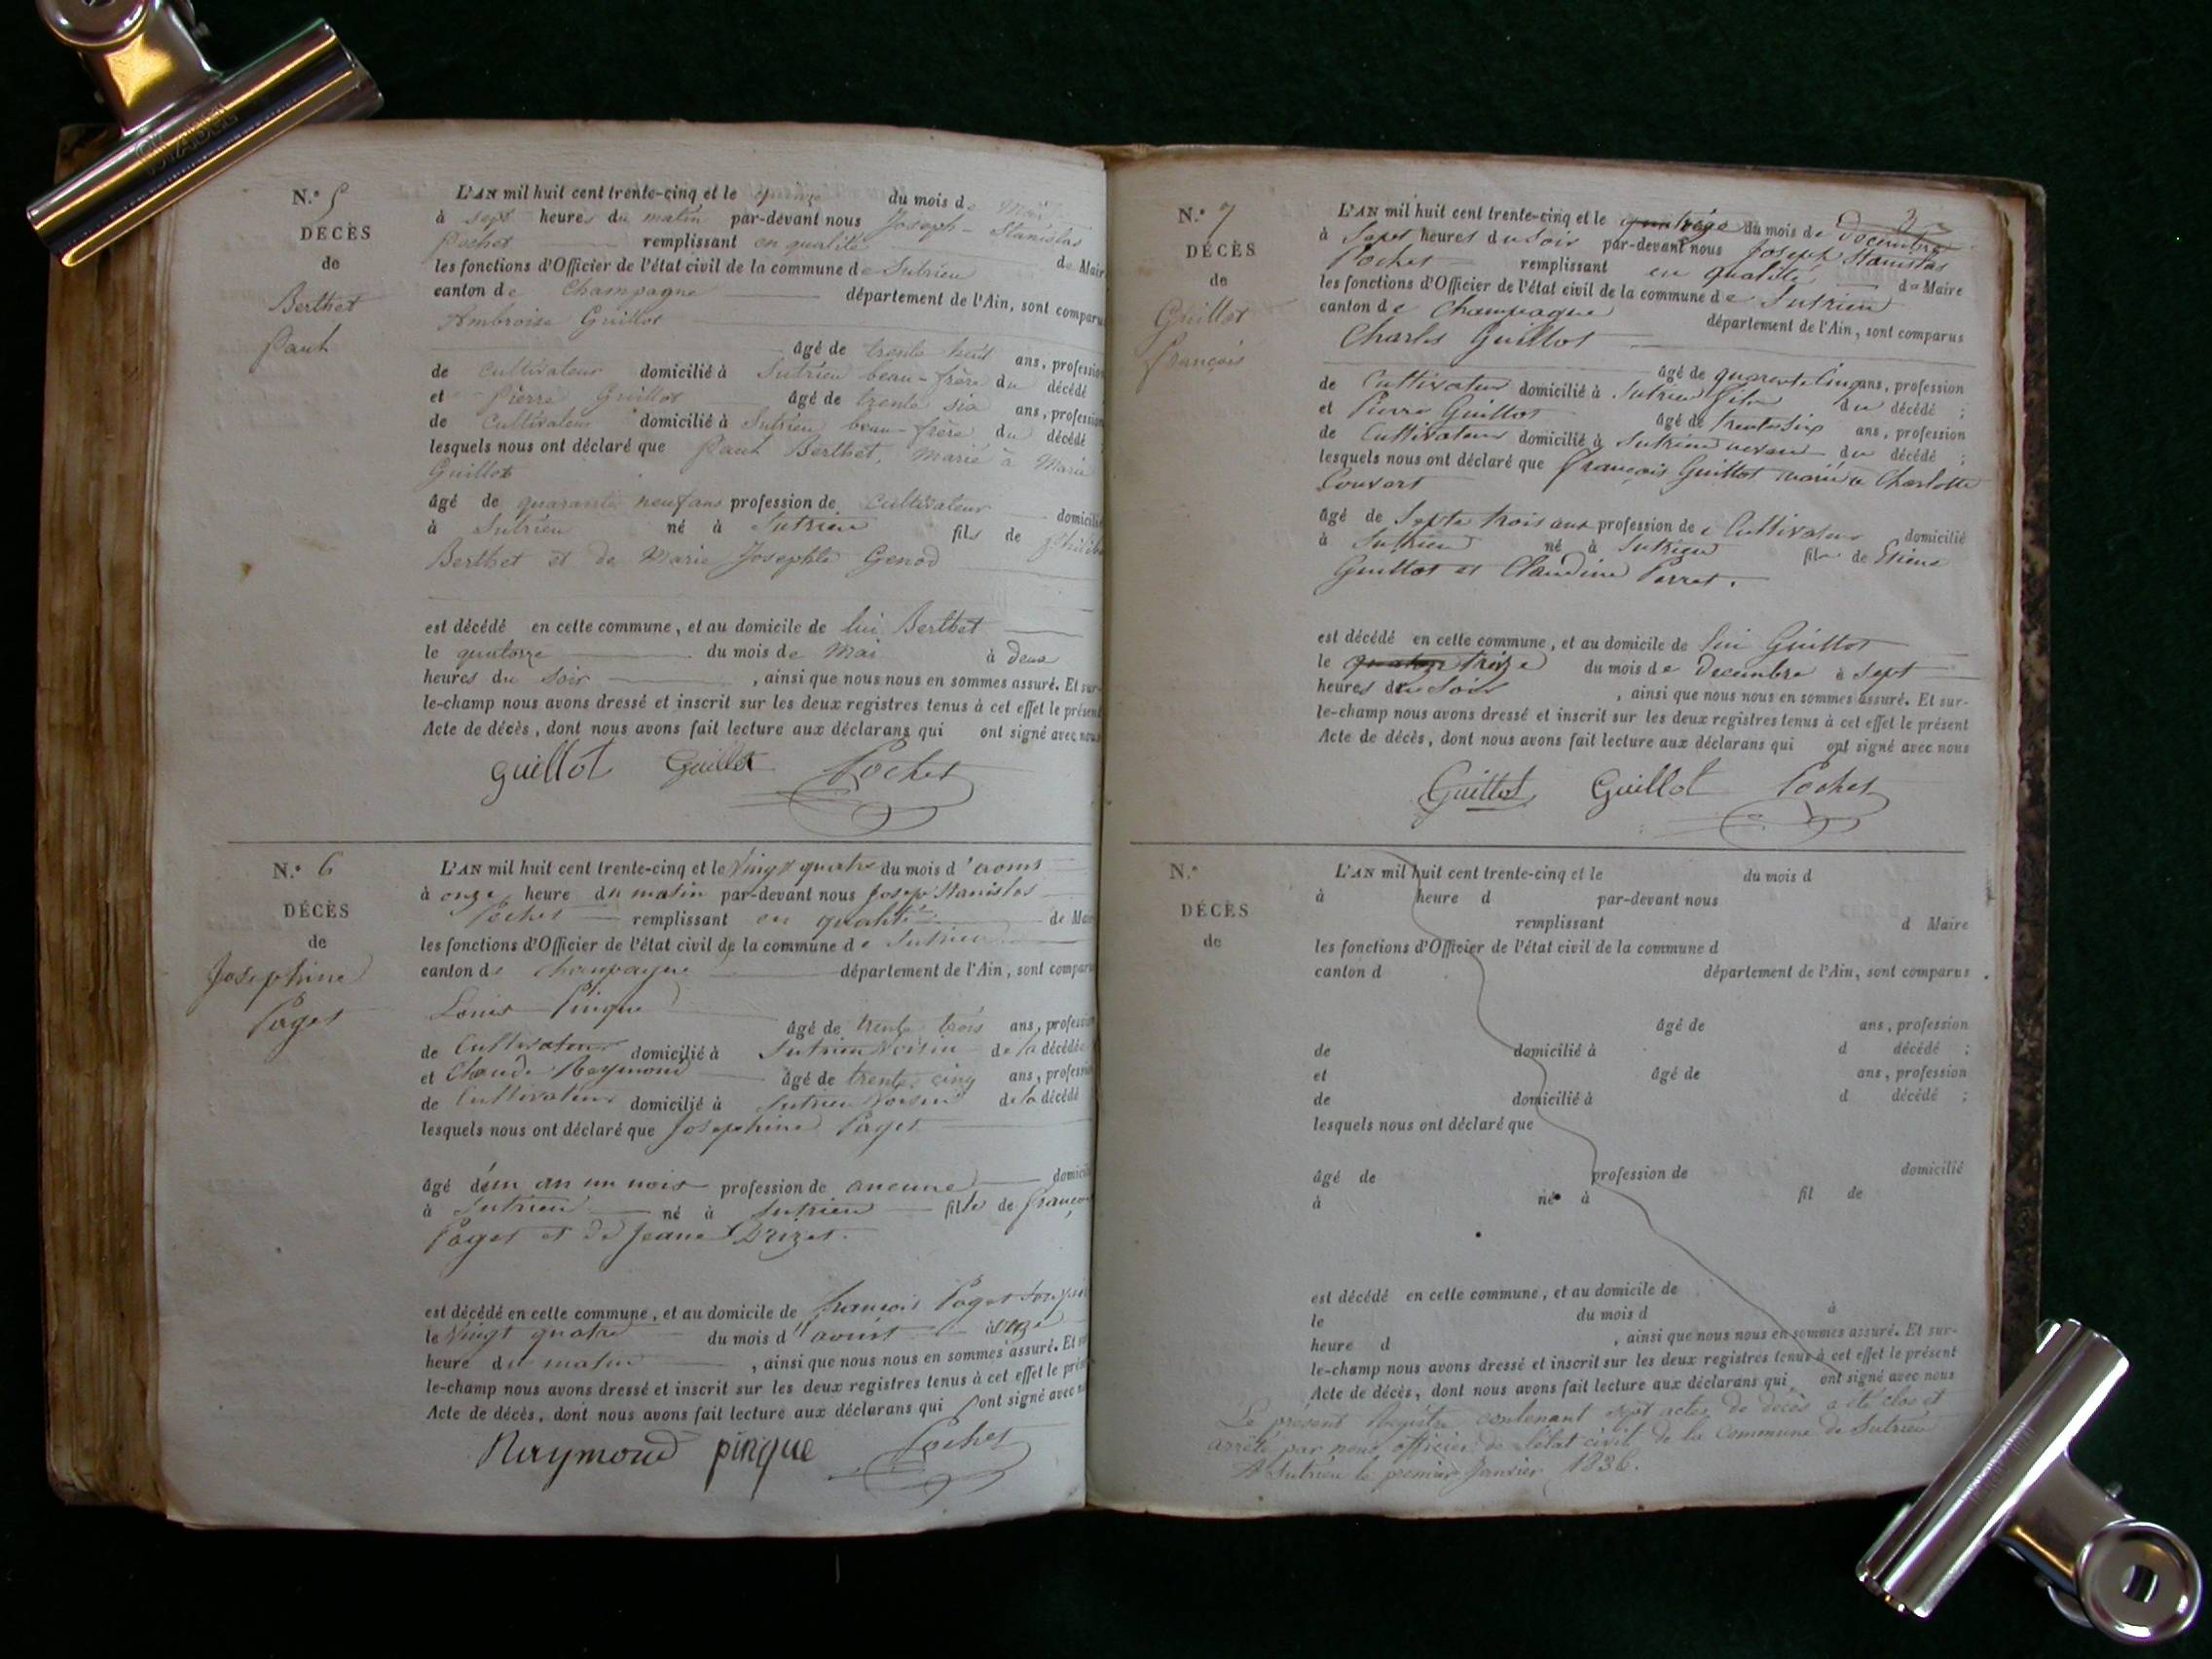 N.° 5
DÉCÈS
de
Berthet
Paul
L'AN mil huit cent trente-cinq et le quinze du mois de Mai
à sept heures du matin par-devant nous Joseph-Stanislas
Pochet remplissant en qualité de Maire
les fonctions d'Officier de l'état civil de la commune de Sutrieu
canton de Champagne département de l'Ain, sont comparus
Ambroise Guillot
âgé de trente huit ans, profession
de Cultivateur domicilié à Sutrieu beau-frère du décédé
et Pierre Guillot âgé de trente six ans, profession
de Cultivateur domicilié à Sutrieu beau-frère du décédé
lesquels nous ont déclaré que Paul Berthet, marié à Marie
Guillot
âgé de quarante neuf ans profession de Cultivateur domicilié
à Sutrieu né à Sutrieu fils de
Berthet et de Marie Josephte Genod
est décédé en cette commune, et au domicile de lui Berthet
le quatorze du mois de Mai à deux
heures du soir , ainsi que nous nous en sommes assuré. Et sur-
le-champ nous avons dressé et inscrit sur les deux registres tenus à cet effet le présent
Acte de décès, dont nous avons fait lecture aux déclarans qui ont signé avec nous
guillot Guillot Pochet
N.° 6
DÉCÈS
de
Josephine
Paget
L'AN mil huit cent trente-cinq et le Vingt quatre du mois d'aoust
à onze heure du matin par-devant nous Josep Stanislas
Pochet remplissant en qualité de Maire
les fonctions d'Officier de l'état civil de la commune de Sutrieu
canton de Champagne département de l'Ain, sont comparus
Louis Pingue
âgé de trente trois ans, profession
de Cultivateur domicilié à Sutrieu Voisin de la décédée
et Claude Raymond âgé de trente cinq ans, profession
de Cultivateur domicilié à Sutrieu Voisin de la décédé
lesquels nous ont déclaré que Josephine Paget
âgé d'un an un mois profession de aucune domicilié
à Sutrieu né à Sutrieu fille de françois
Paget et de Jeane Drizet.
est décédé en cette commune, et au domicile de françois Paget son
le Vingt quatre du mois d'aoust à onze
heure du matin , ainsi que nous nous en sommes assuré. Et sur
le-champ nous avons dressé et inscrit sur les deux registres tenus à cet effet le présent
Acte de décès, dont nous avons fait lecture aux déclarans qui ont signé avec nous
Raymond pingue Pochet
3
N.° 7
DÉCÈS
de
Guillot
François
L'AN mil huit cent trente-cinq et le treize du mois de decembre
à Sept heures du soir par-devant nous Joseph Stanislas
Pochet remplissant en qualité de Maire
les fonctions d'Officier de l'état civil de la commune de Sutrieu
canton de Champagne département de l'Ain, sont comparus
Charles Guillot
âgé de quarente Cinq ans, profession
de Cultivateur domicilié à Sutrieu fils du décédé ;
et Pierre Guillot âgé de trente Six ans, profession
de Cultivateur domicilié à Sutrieu neveu du décédé ;
lesquels nous ont déclaré que François Guillot marié a Charlotte
Couvert
âgé de Septe trois ans profession de Cultivateur domicilié
à Sutrieu né à Sutrieu fils de Etiene
Guillot et Claudine Perret.
est décédé en cette commune, et au domicile de lui Guillot
le treize du mois de decembre à sept
heures du Soir , ainsi que nous nous en sommes assuré. Et sur-
le-champ nous avons dressé et inscrit sur les deux registres tenus à cet effet le présent
Acte de décès, dont nous avons fait lecture aux déclarans qui ont signé avec nous
Guillot Guillot Pochet
N.°
DÉCÈS
de
L'AN mil huit cent trente-cinq et le du mois d
à heure d par-devant nous
remplissant d Maire
les fonctions d'Officier de l'état civil de la commune d
canton d département de l'Ain, sont comparus
âgé de ans, profession
de domicilié à d décédé ;
et âgé de ans, profession
de domicilié à d décédé ;
lesquels nous ont déclaré que
âgé de profession de domicilié
à né à fil de
est décédé en cette commune, et au domicile de
le du mois d à
heure d , ainsi que nous nous en sommes assuré. Et sur-
le-champ nous avons dressé et inscrit sur les deux registres tenus à cet effet le présent
Acte de décès, dont nous avons fait lecture aux déclarans qui ont signé avec nous
Le présent Registre contenant sept actes de décès a été clos et
arrêté par nous officier de l'état civil de la Commune de Sutrieu
A Sutrieu le premier Janvier 1836.